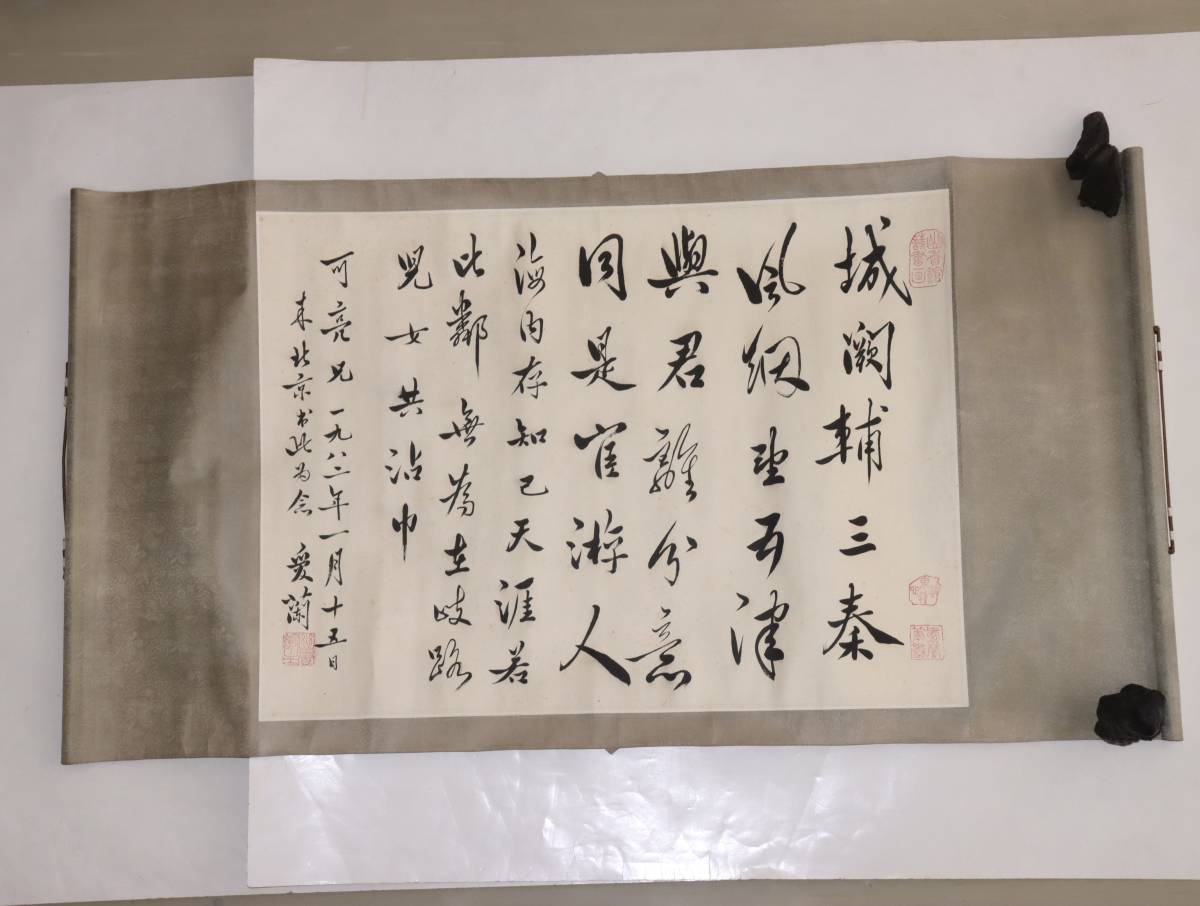 城阙輔三秦
風烟望五津
與君離分意
同是宦遊人
海内存知己天涯若
比鄰無為在歧路
兒女共沾巾
可亮兄一九八二年一月十五日
来北京书此为念 爱蘭